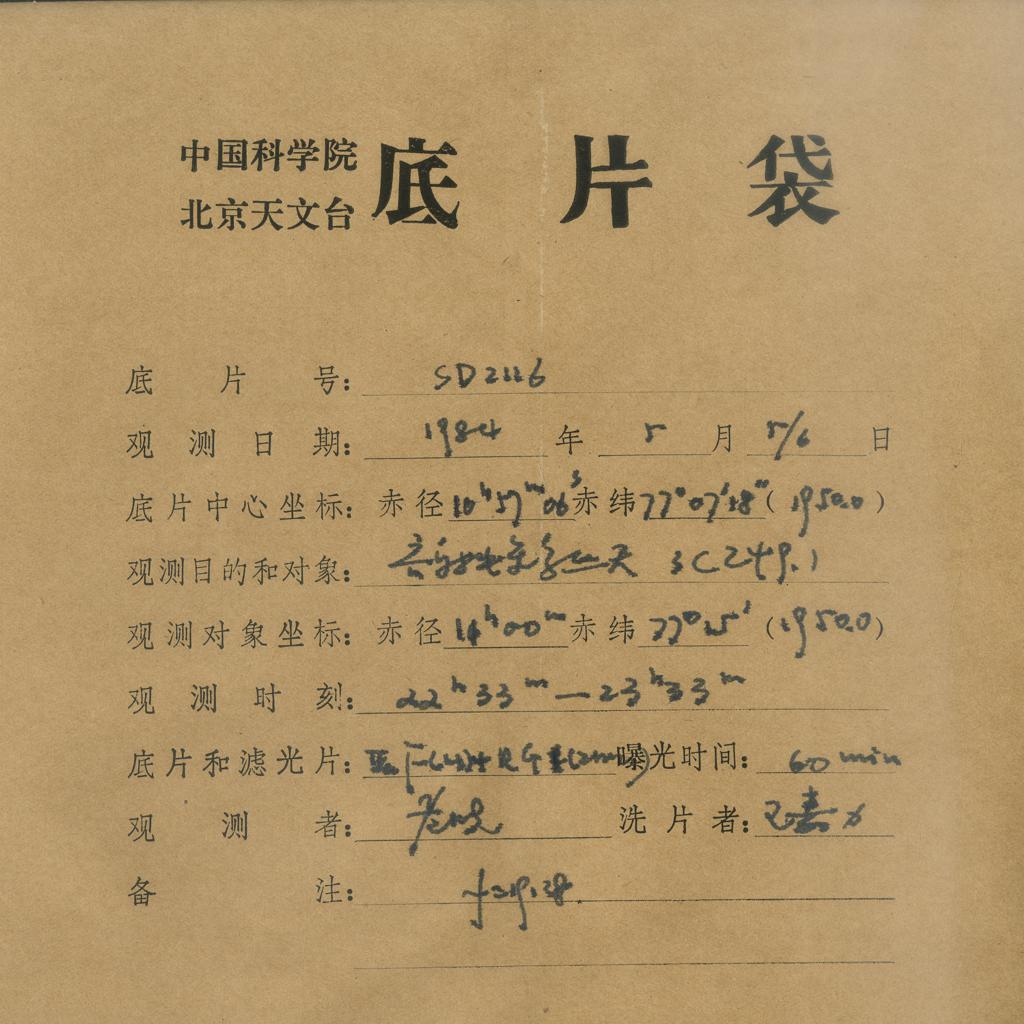 中国科学院
北京天文台
底片袋
底片号: SD2116
观测日期: 1984年 5月 5/6日
底片中心坐标: 赤径10ʰ57ᵐ06ˢ赤纬77°07′18″(1950.0)
观测目的和对象: 3C249.1
观测对象坐标: 赤径11ʰ00ᵐ赤纬77°15′(1950.0)
观测时刻: 22ʰ33ᵐ—23ʰ33ᵐ
底片和滤光片: 曝光时间: 60min
观测者: 洗片者:
备注: